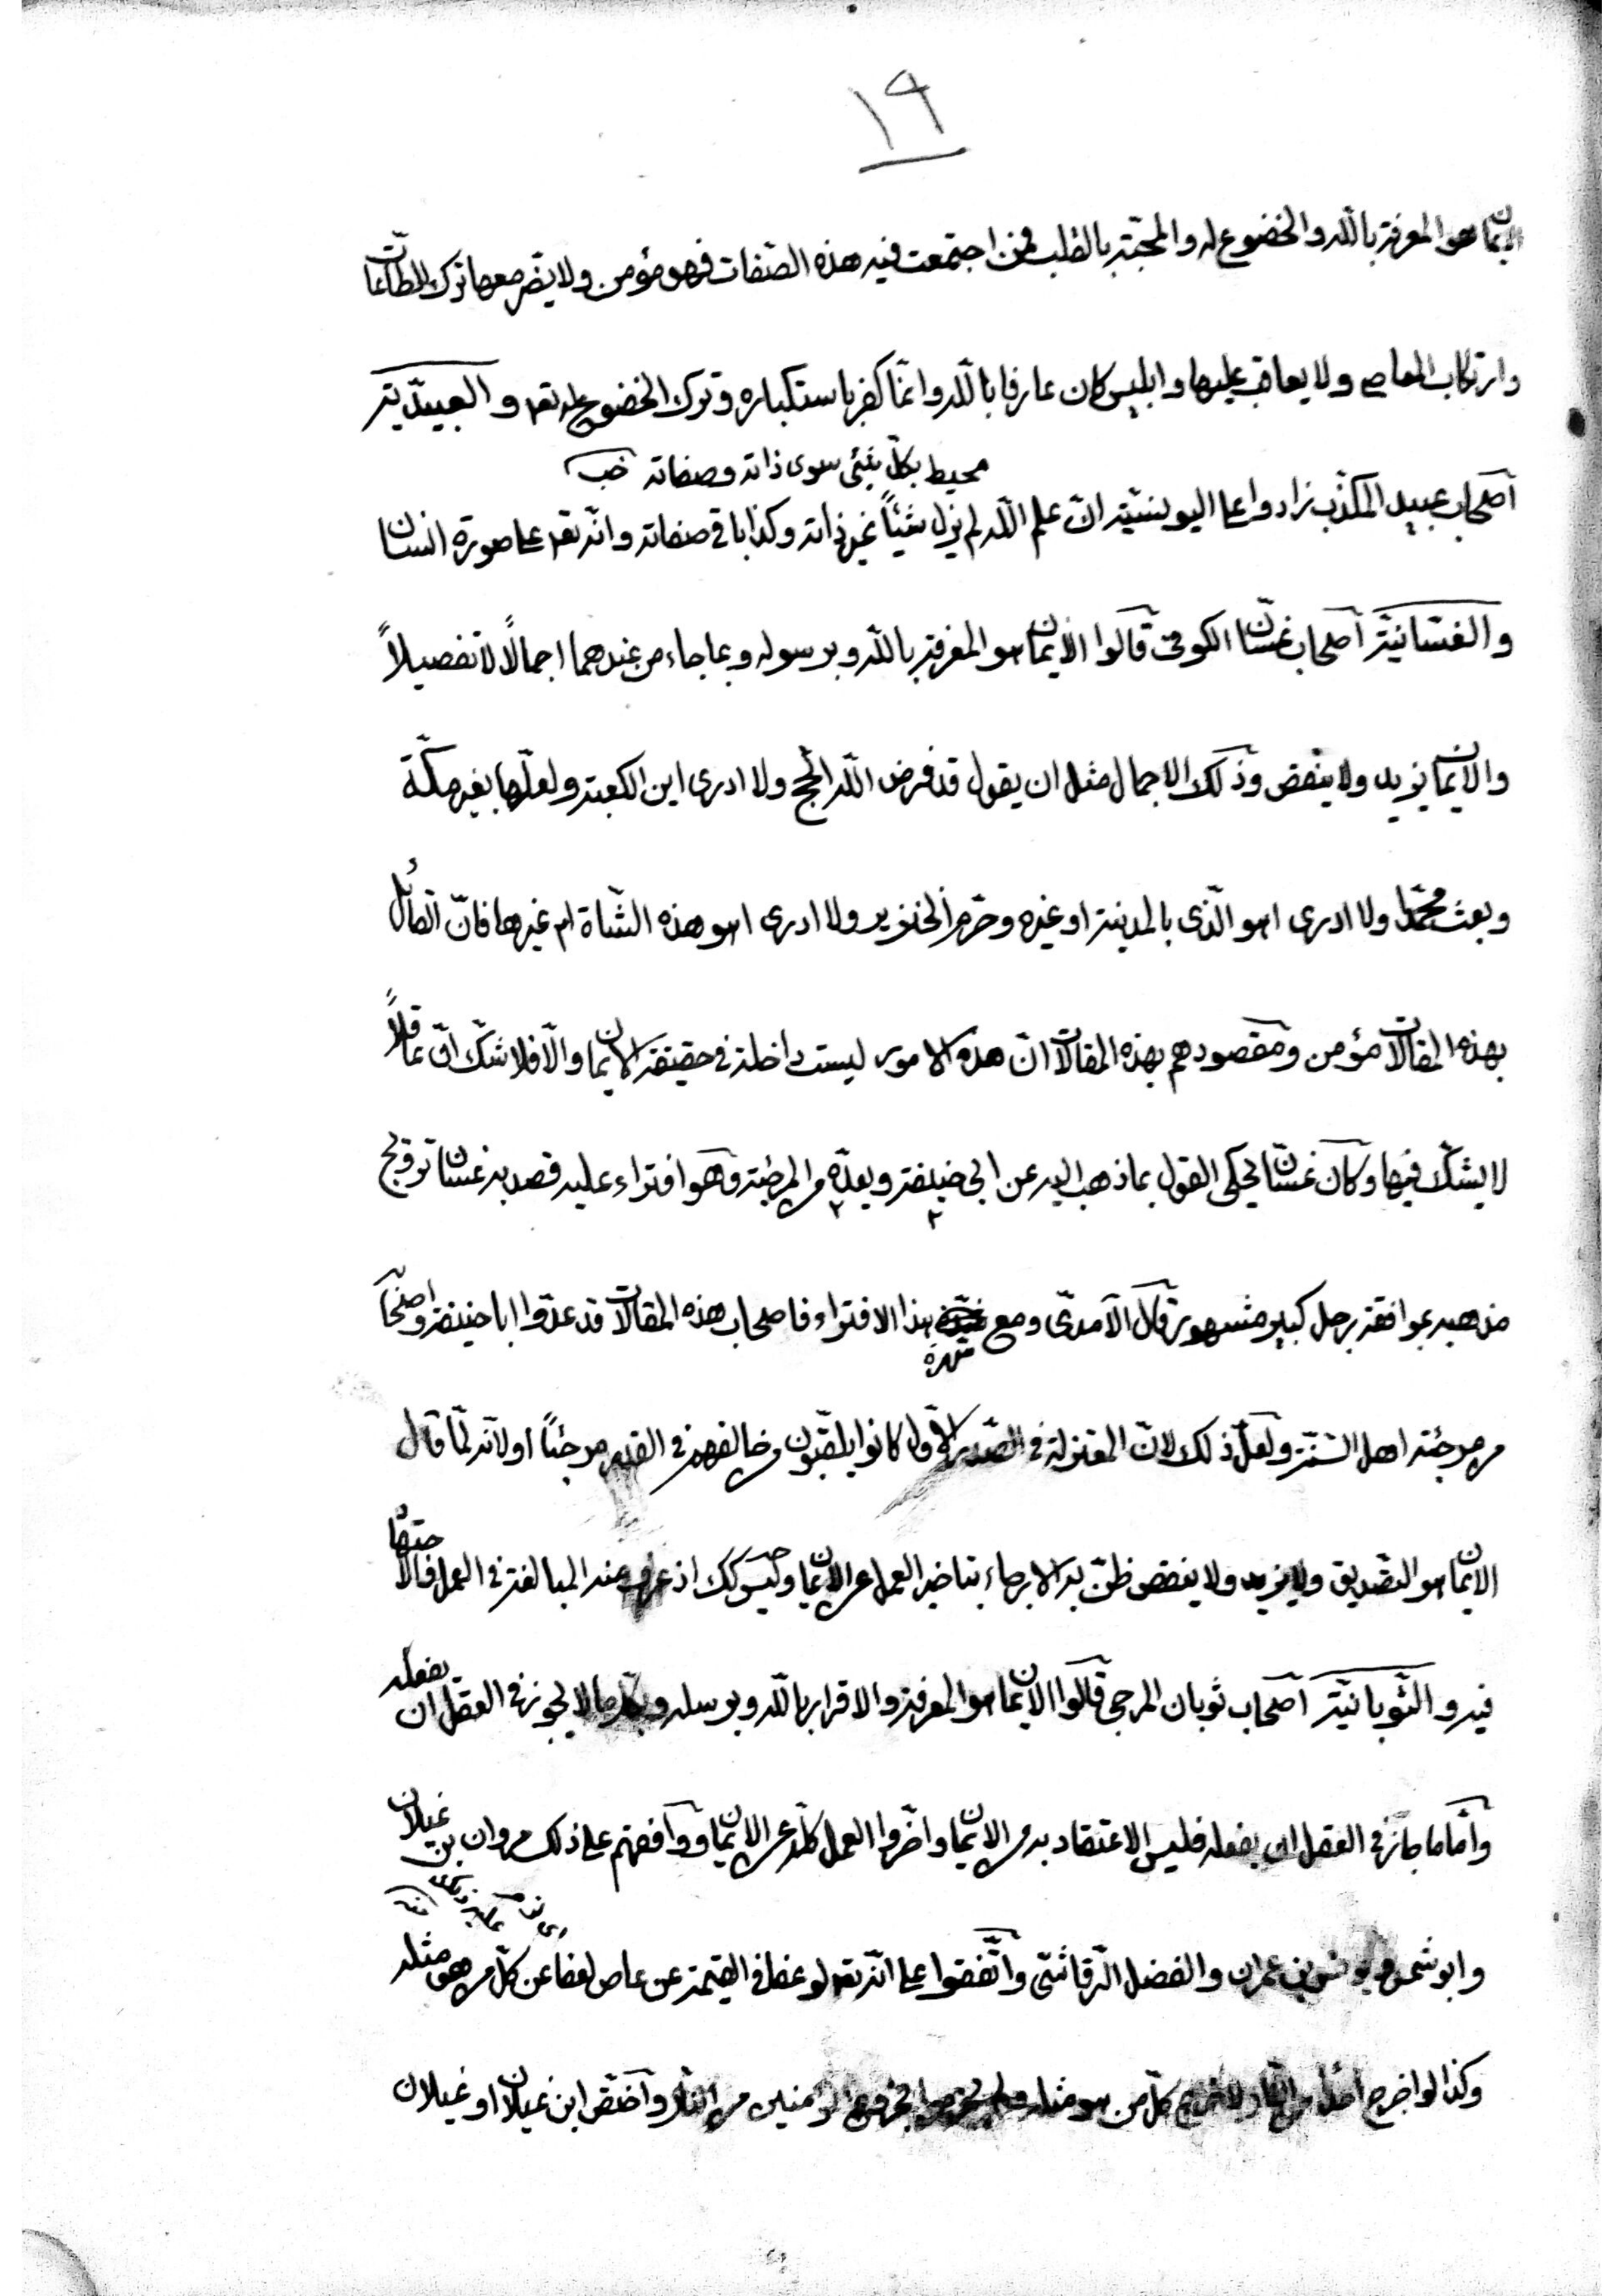 ١٩
الايمان هو المعرفة بالله والخضوع له والمحبة بالقلب فمن اجتمعت فيه هذه الصفات فهو مؤمن ولا يضر معها ترك الطاعات
وارتكاب المعاصي ولا يعاقب عليها وابليس كان عارفا بالله وانما كفر باستكباره وترك الخضوع لله تعه والعبيدية
محيط بكل شئ سوى ذاته وصفاته خب
اصحاب عبيد المكذب زادوا على اليونسية ان علم الله لم يزل شيئاً غير ذاته وكذا باقى صفاته وانه تعه على صورة انسان
والغسانية اصحاب غسان الكوفى قالوا الايمان هو المعرفة بالله وبرسوله وبما جاء من عندهما اجمالاً لا تفصيلاً
والايمان يزيد ولا ينقص وذلك الاجمال مثل ان يقول قد فرض الله الحج ولا ادرى اين الكعبة ولعلها بغير مكة
وبعث محمدا ولا ادرى اهو الذى بالمدينة او غيره وحرم الخنزير ولا ادرى اهو هذه الشاة ام غيرها فان القائل
بهذه المقالات مؤمن ومقصودهم بهذه المقالات ان هذه الامور ليست داخلة فى حقيقة الايمان والا فلا شك ان عاقلاً
لا يشك فيها وكان غسان يحكى القول بما ذهب اليه عن ابى حنيفة ويعده من المرجئة وهو افتراء عليه قصد به غسان ترويج
مذهبه بموافقة رجل كبير مشهور قال الآمدى ومع هذا الافتراء فاصحاب هذه المقالات قد عدوا ابا حنيفة واصحابه
من مرجئة اهل السنة ولعل ذلك لان المعتزلة فى الصدر الاول كانوا يلقبون من خالفهم فى القدر مرجئاً او لانه لما قال
الايمان هو التصديق ولا يزيد ولا ينقص ظن به الارجاء بتاخير العمل عن الايمان وليس كك اذ عرف منه المبالغة فى العمل والاجتهاد
فيه والثوبانية اصحاب ثوبان المرجى قالوا الايمان هو المعرفة والاقرار بالله وبرسله وبكل ما لا يجوز فى العقل ان يفعله
واما ما جاز فى العقل ان يفعله فليس الاعتقاد به من الايمان واخروا العمل كله عن الايمان ووافقهم على ذلك مروان بن غيلان
وابو شمر ويونس بن عمران والفضل الرقاشى واتفقوا على انه تعه لو عفا فى القيمة عن عاص لعفا عن كل من هو مثله
وكذا لو اخرج واحدا من النار لاخرج كل من هو مثله ولم يجزموا بخروج المؤمنين من النار واختص ابن غيلان او غيلان